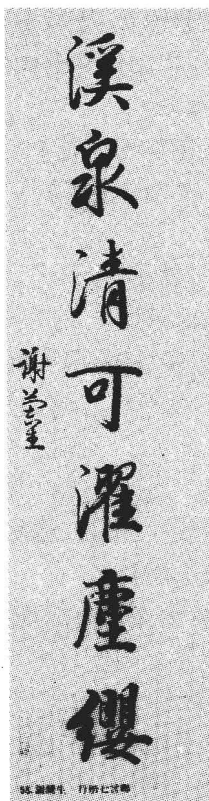 溪泉清可濯塵纓
謝蘭生
58.謝蘭生 行楷七言聯